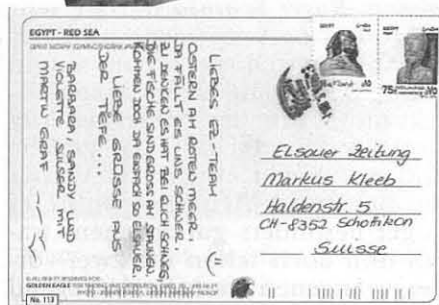 EGYPT - RED SEA
LIEBES EZ-TEAM
OSTERN AM ROTEN MEER,
DA FÄLLT ES UNS SCHWER,
ZU DENKEN ES HAT BEI EUCH SCHNEE,
DIE FISCHE SIND GROSS AM STAUNEN,
KOMMEN DOCH DA EINFACH SO ELSAUER.
LIEBE GRÜSSE AUS
DER TIEFE...
BARBARA, SANDY UND
VIOLETTE SULSER MIT
MARTIN GRAF
75P
Elsauer Zeitung
Markus Kleeb
Haldenstr. 5
CH-8352 Schottikon
Suisse
GOLDEN EAGLE
No. 113